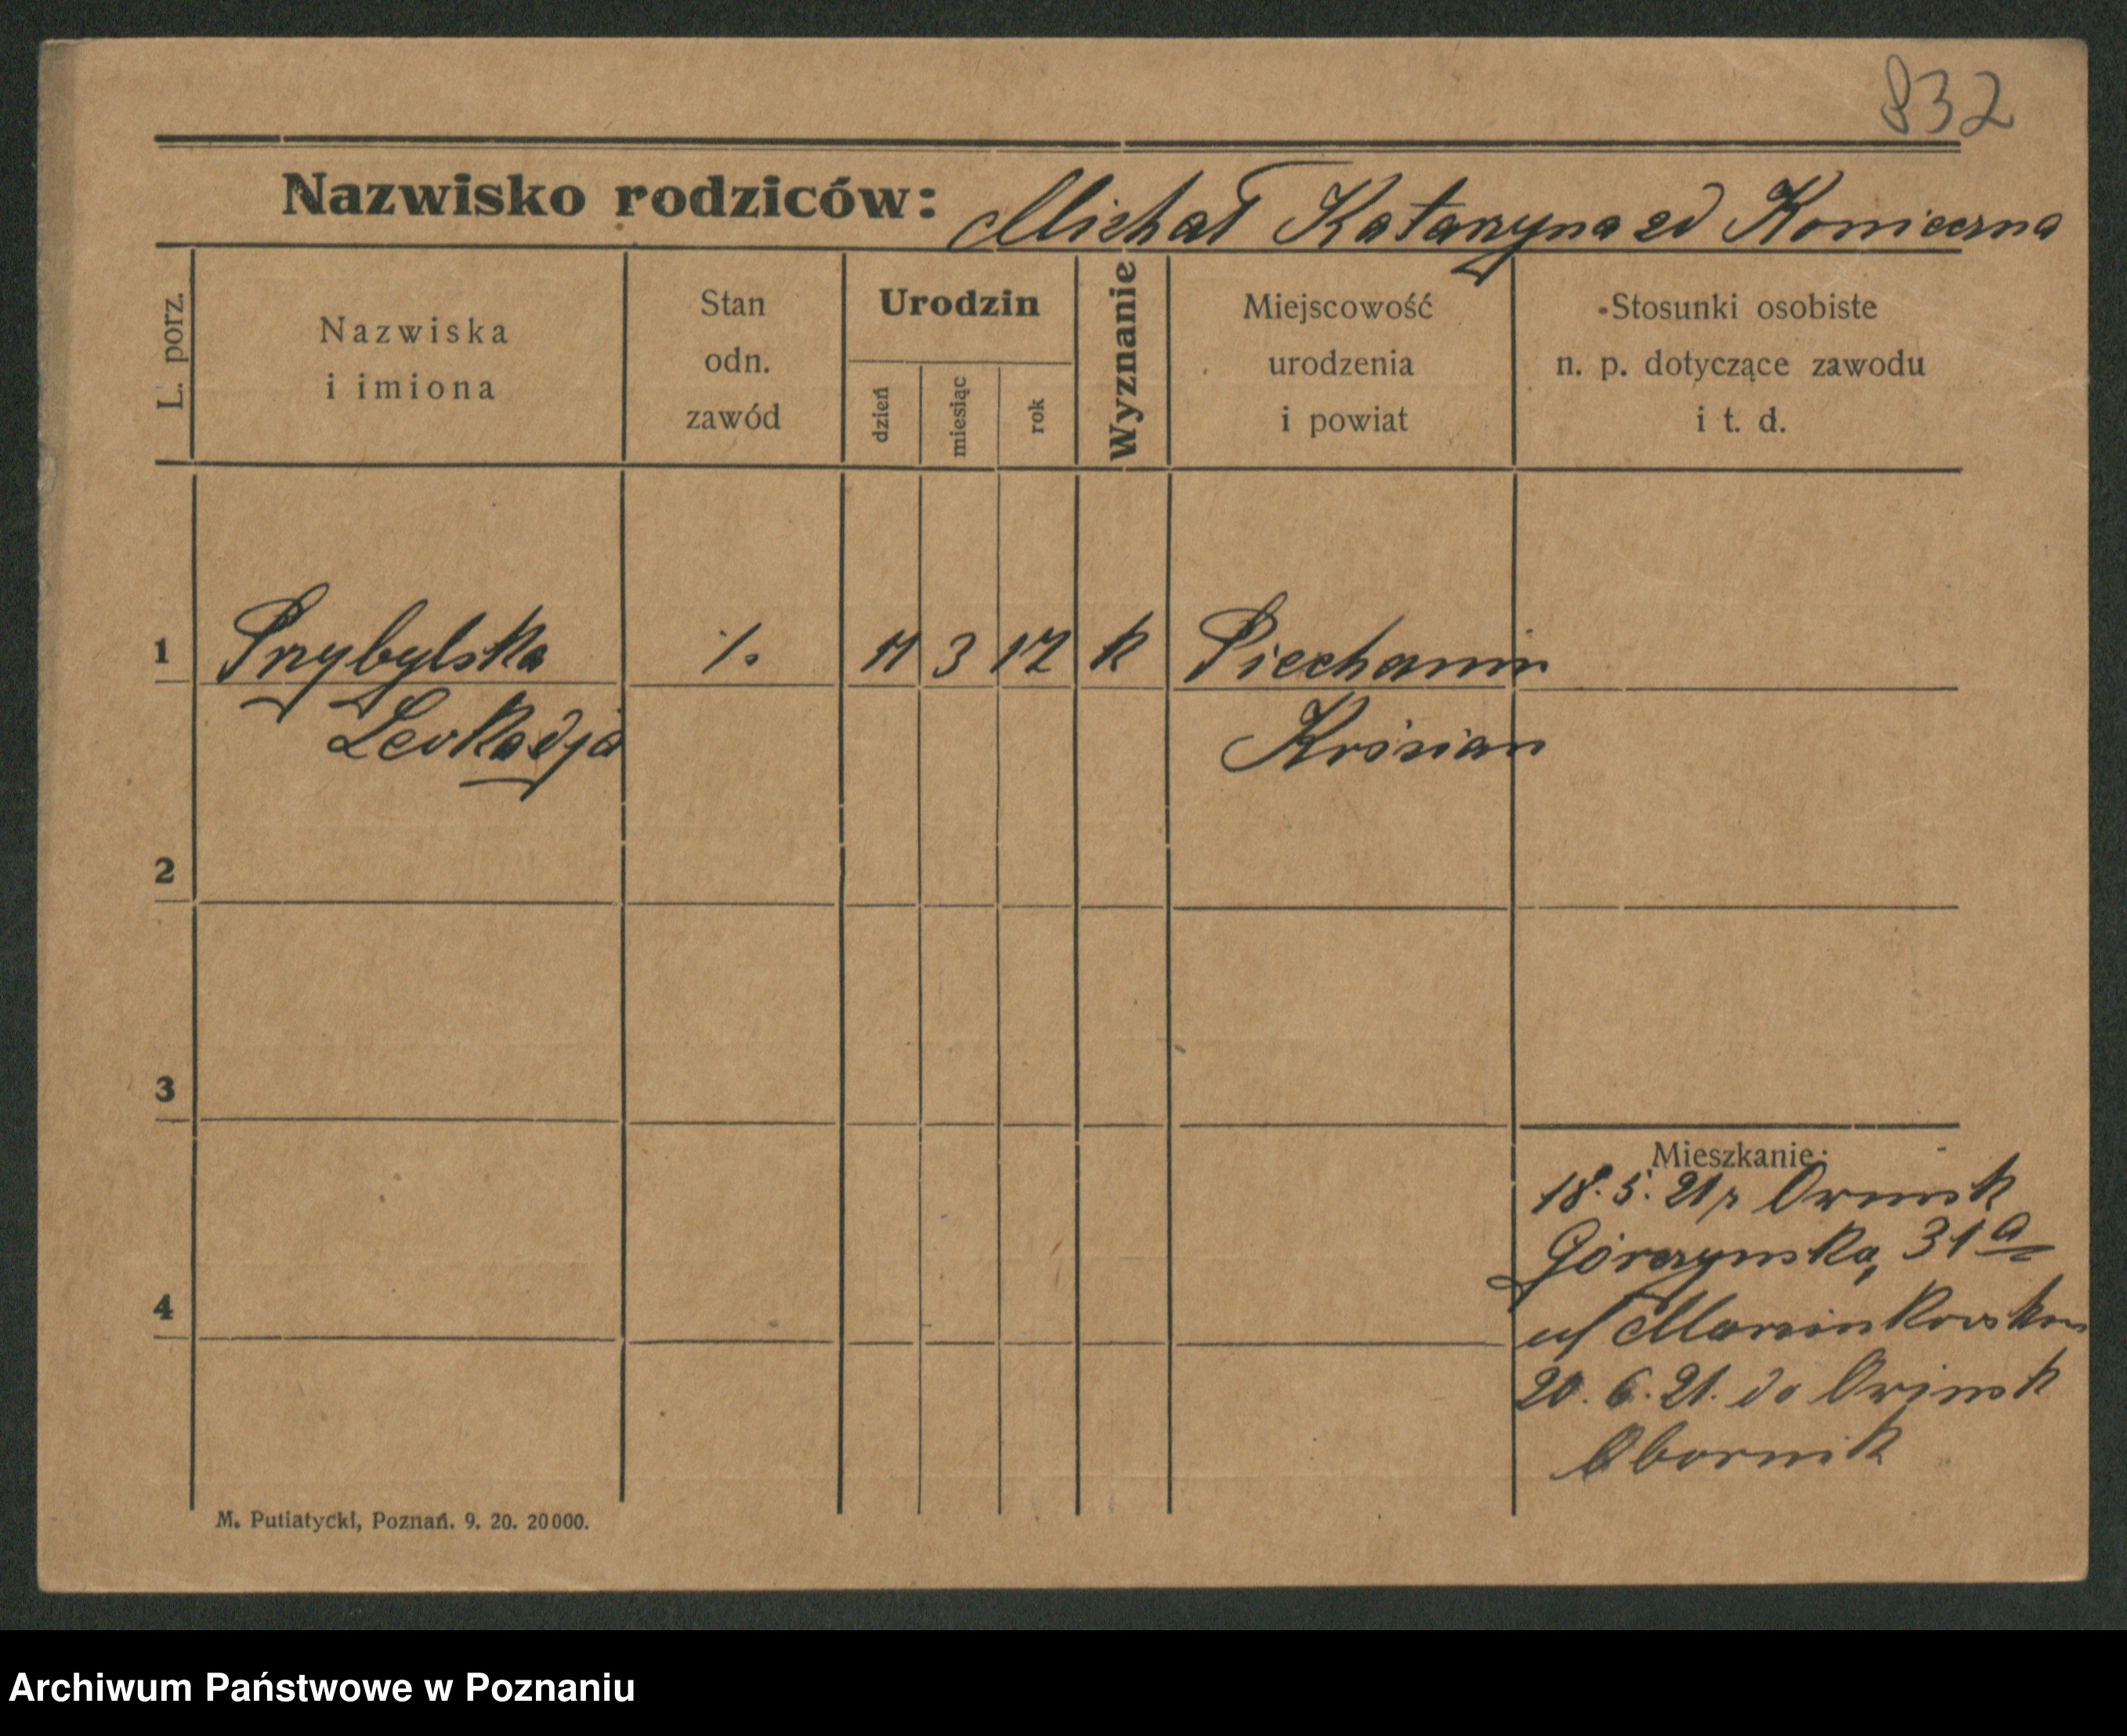 832
Nazwisko rodziców: Michał Katarzyna zd Konieczna
L. porz.
Nazwiska
i imiona
Stan
odn.
zawód
Urodzin
dzień
miesiąc
rok
Wyznanie
Miejscowość
urodzenia
i powiat
Stosunki osobiste
n. p. dotyczące zawodu
i t. d.
1 Przybylska ·/. 11 3 17 k Piechanin
Leokadja Kościan
2
3
Mieszkanie:
18. 5. 21 r Owinsk
Górczynska, 31a
4
u/ Marcinkowskim
20. 6. 21. do Owinsk
Obornik
M. Putiatycki, Poznań. 9. 20. 20000.
Archiwum Państwowe w Poznaniu